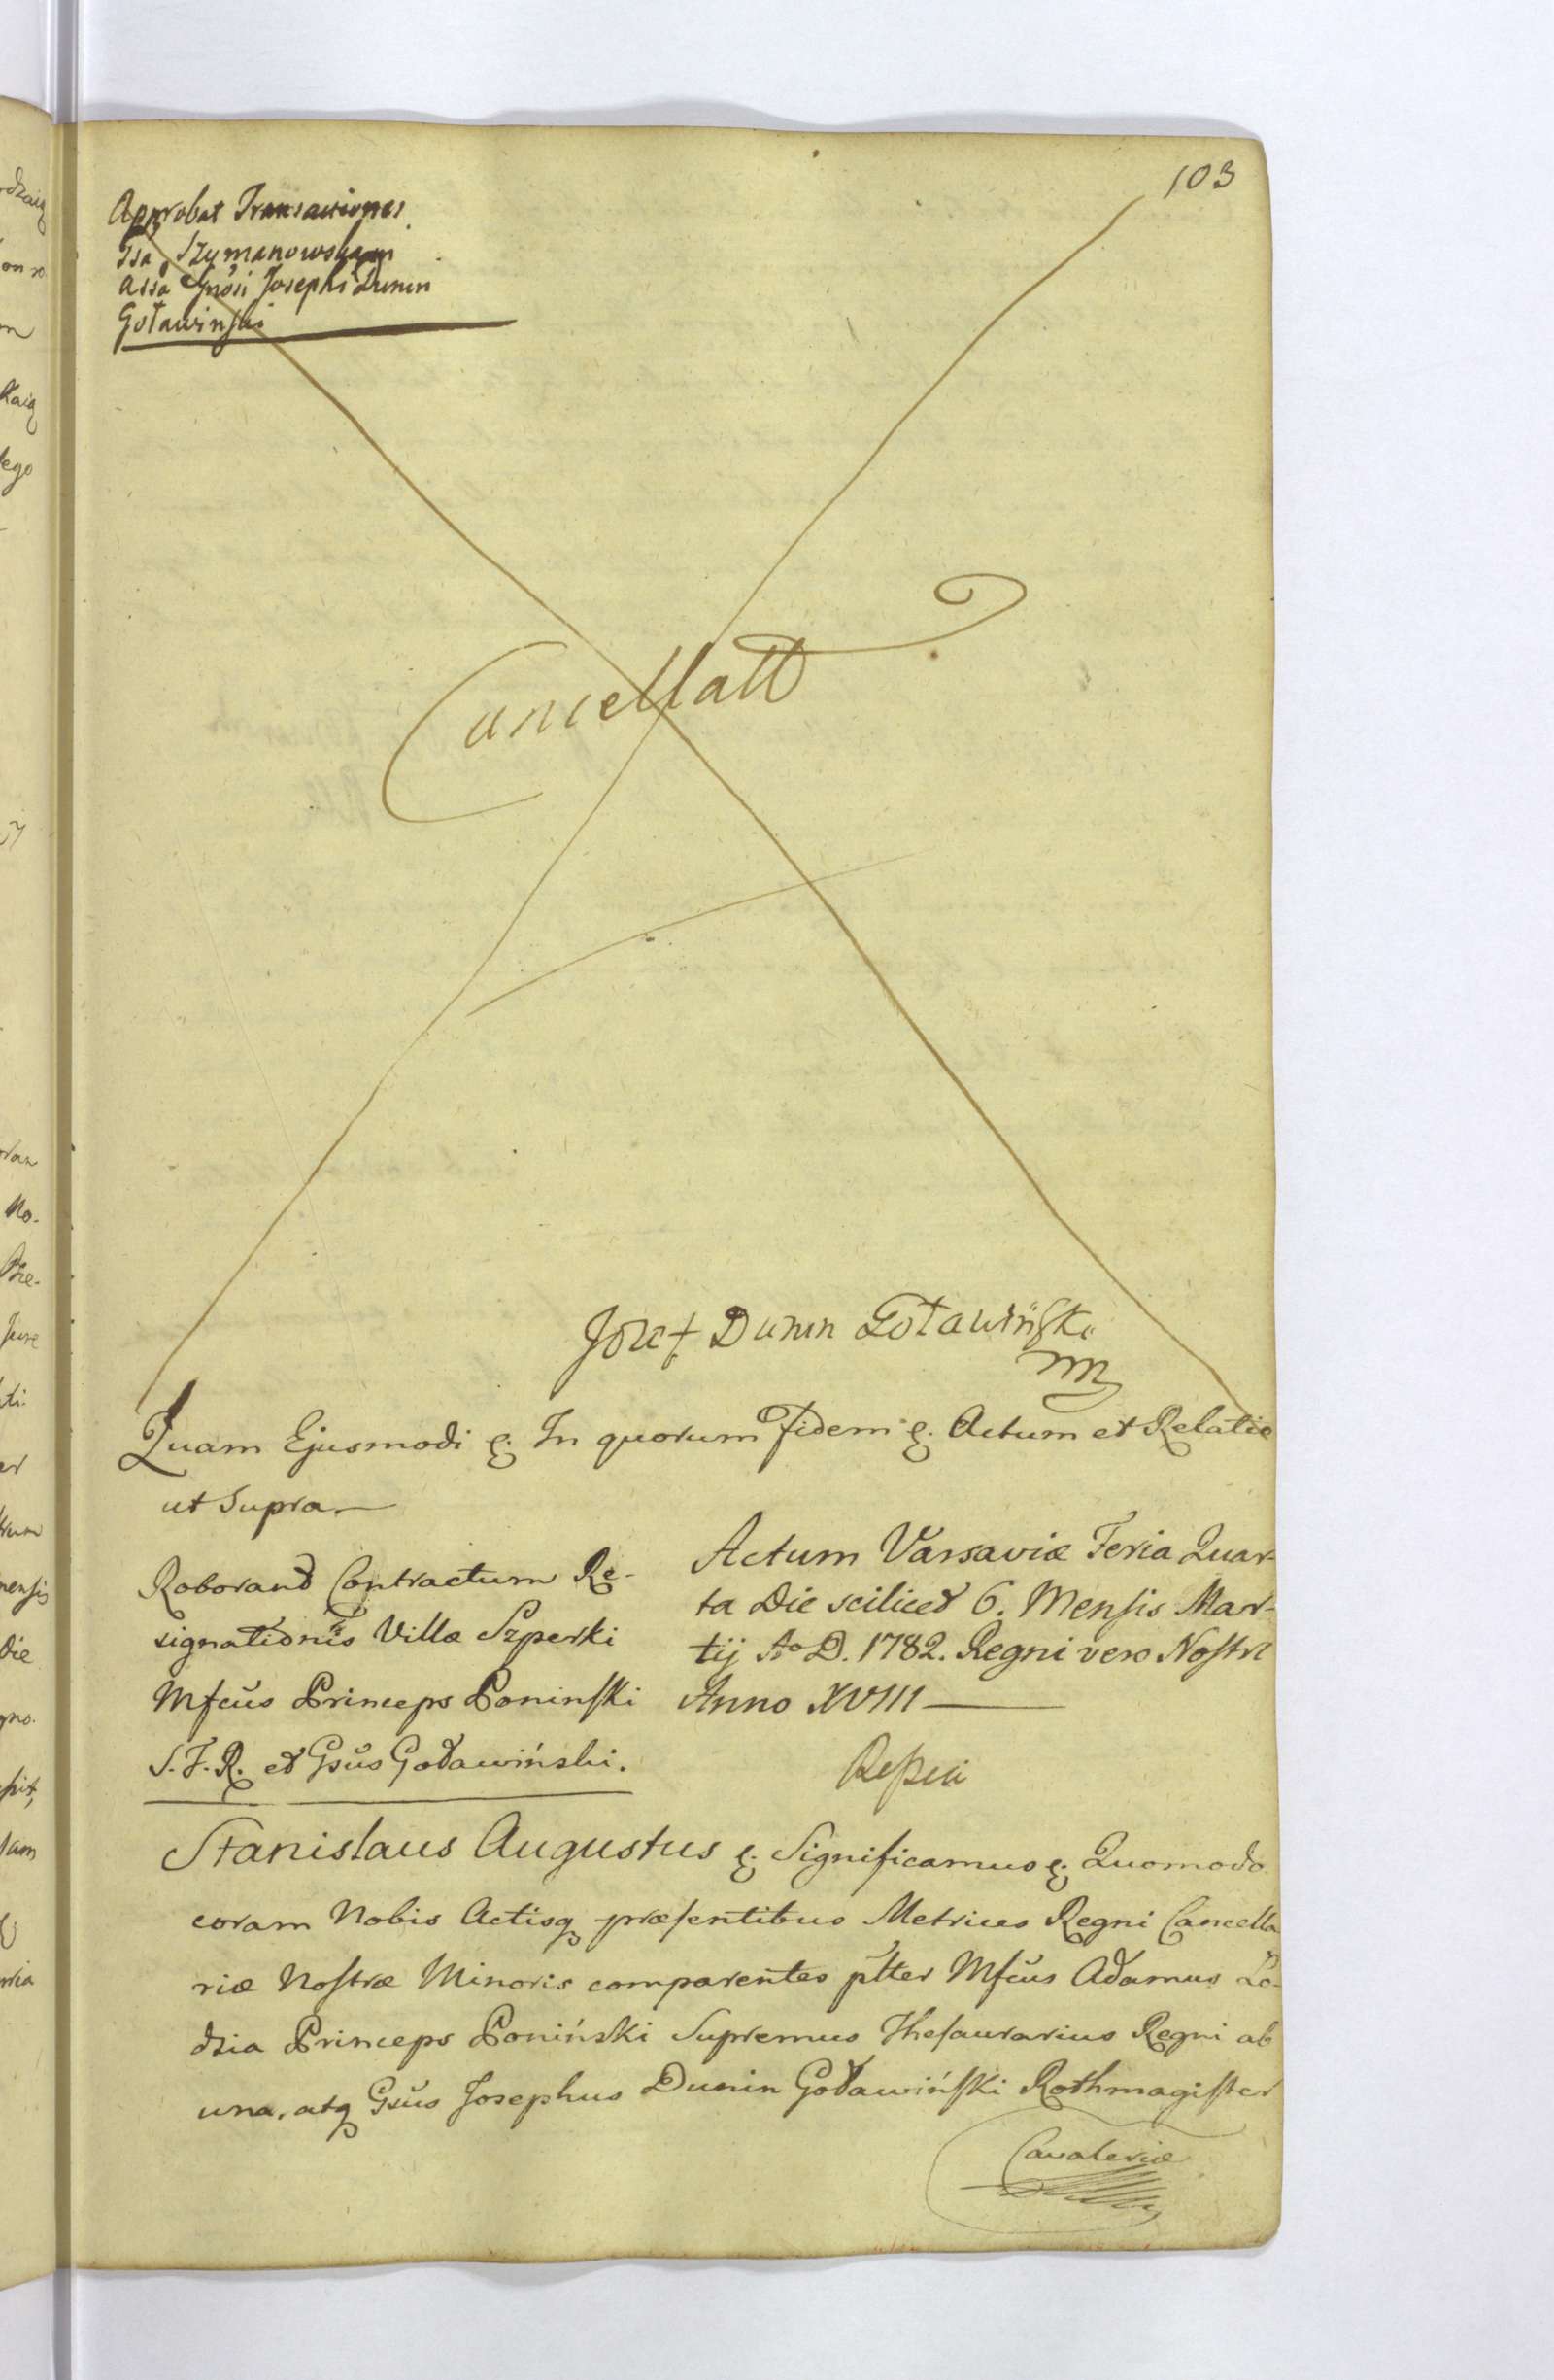 103
Approbat Transactiones
Isa Szymanowskam
assa Gnosi Josephi Dunin
Goławinski
Cancellatt
Józef Dunin Goławiński
mp
Quam Ejusmodi &. In quorum Fidem &. Actum et Relatio
ut Supra
Roborand Contractum Re-
signationis Villa Szperki
Mfcus Princeps Poninski
S. T. R. et Gsus Goławiński.
Actum Varsaviæ Feria Quar-
ta Die scilicet 6. Mensis Mar-
tij Ao D. 1782. Regni vero Nostri
Anno XVIII
Stanislaus Augustus &. Significamus &. Quomodo
coram Nobis Actisq præsentibus Metrices Regni Cancella
riæ Nostræ Minoris comparentes pltter Mfcus Adamus Lo-
dzia Princeps Poniński Supremus Thesaurarius Regni ab
una, atq Gsus Josephus Dunin Goławiński Rothmagister
Cavaleriæ